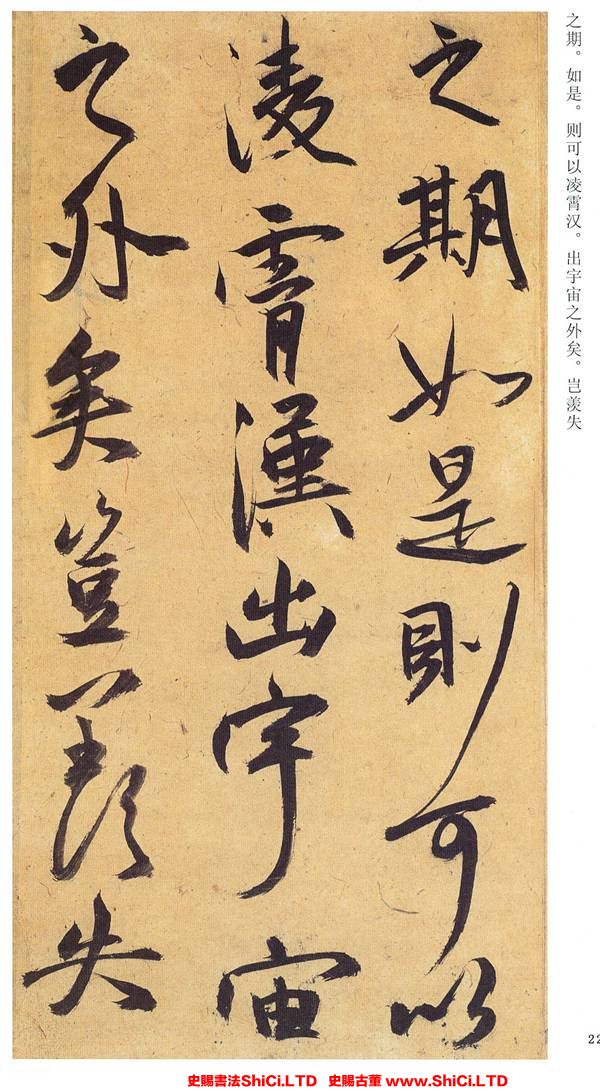 之期。如是。则可以凌霄汉。出宇宙之外矣。岂羡失
之期如是則可以
淩霄漢出宇宙
之外矣豈羨失
22
史賜書法ShiCi.LTD 史賜古董 www.ShiCi.LTD